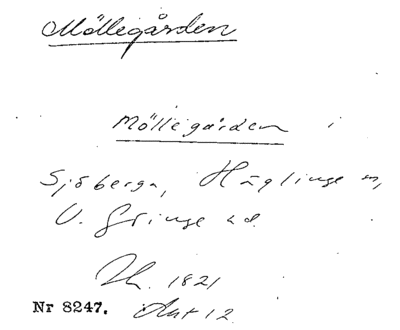 Möllegården
Möllegården i
Sjöberga, Häglinge sn,
V. Göinge hd.
Th. 1821
Nr 8247. Ant 12